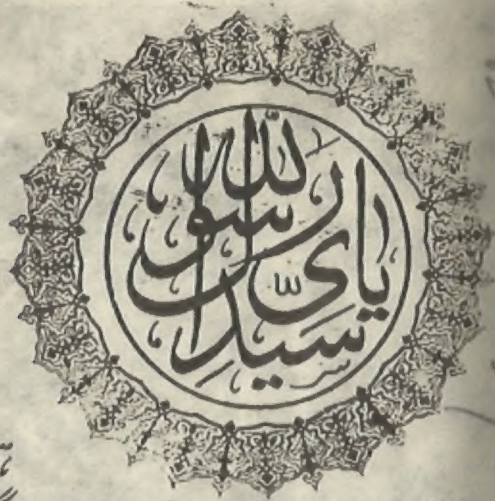 يا سيدي يا رسول الله